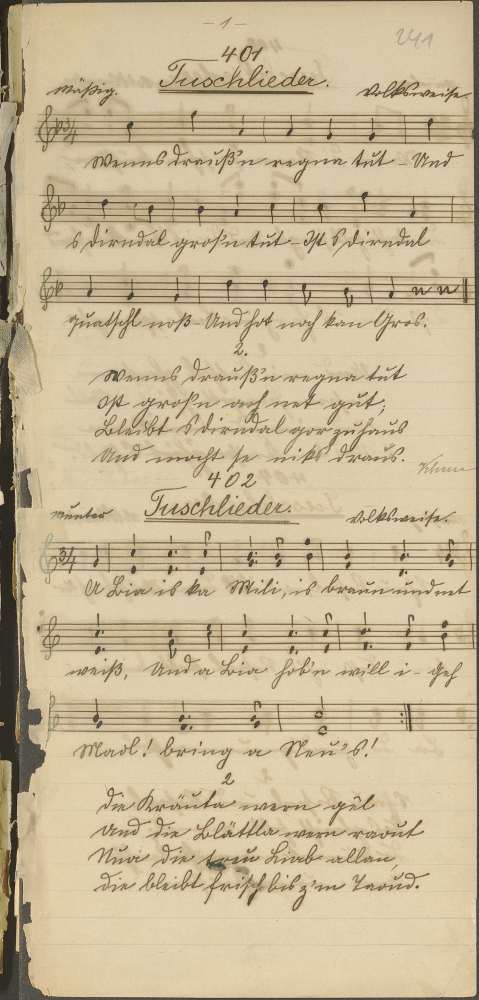 - 1 -
241
401
Tuschlieder.
mäßig. Volksweise.
Wenns drauß'n regna tut - Und
s Dirndal gros'n tut - Ist s Dirndal
quatschl noß - Und hot noch kan Gros.
2.
Wenns drauß'n regna tut
Ist gros'n ach net gut;
Bleibt s Dirndal gor zuhaus
Und mocht se niks draus.
402
Tuschlieder.
munter Volksweise.
A Bia is ka Mili, is braun und net
weiß, Und a Bia hob'n will i - Geh
Madl! bring a Neu's!
2
Die Kräuta wern gel
Und die Blättla wern raout
Nua die treu Liab allan,
Die bleibt frisch bis z'm Taoud.